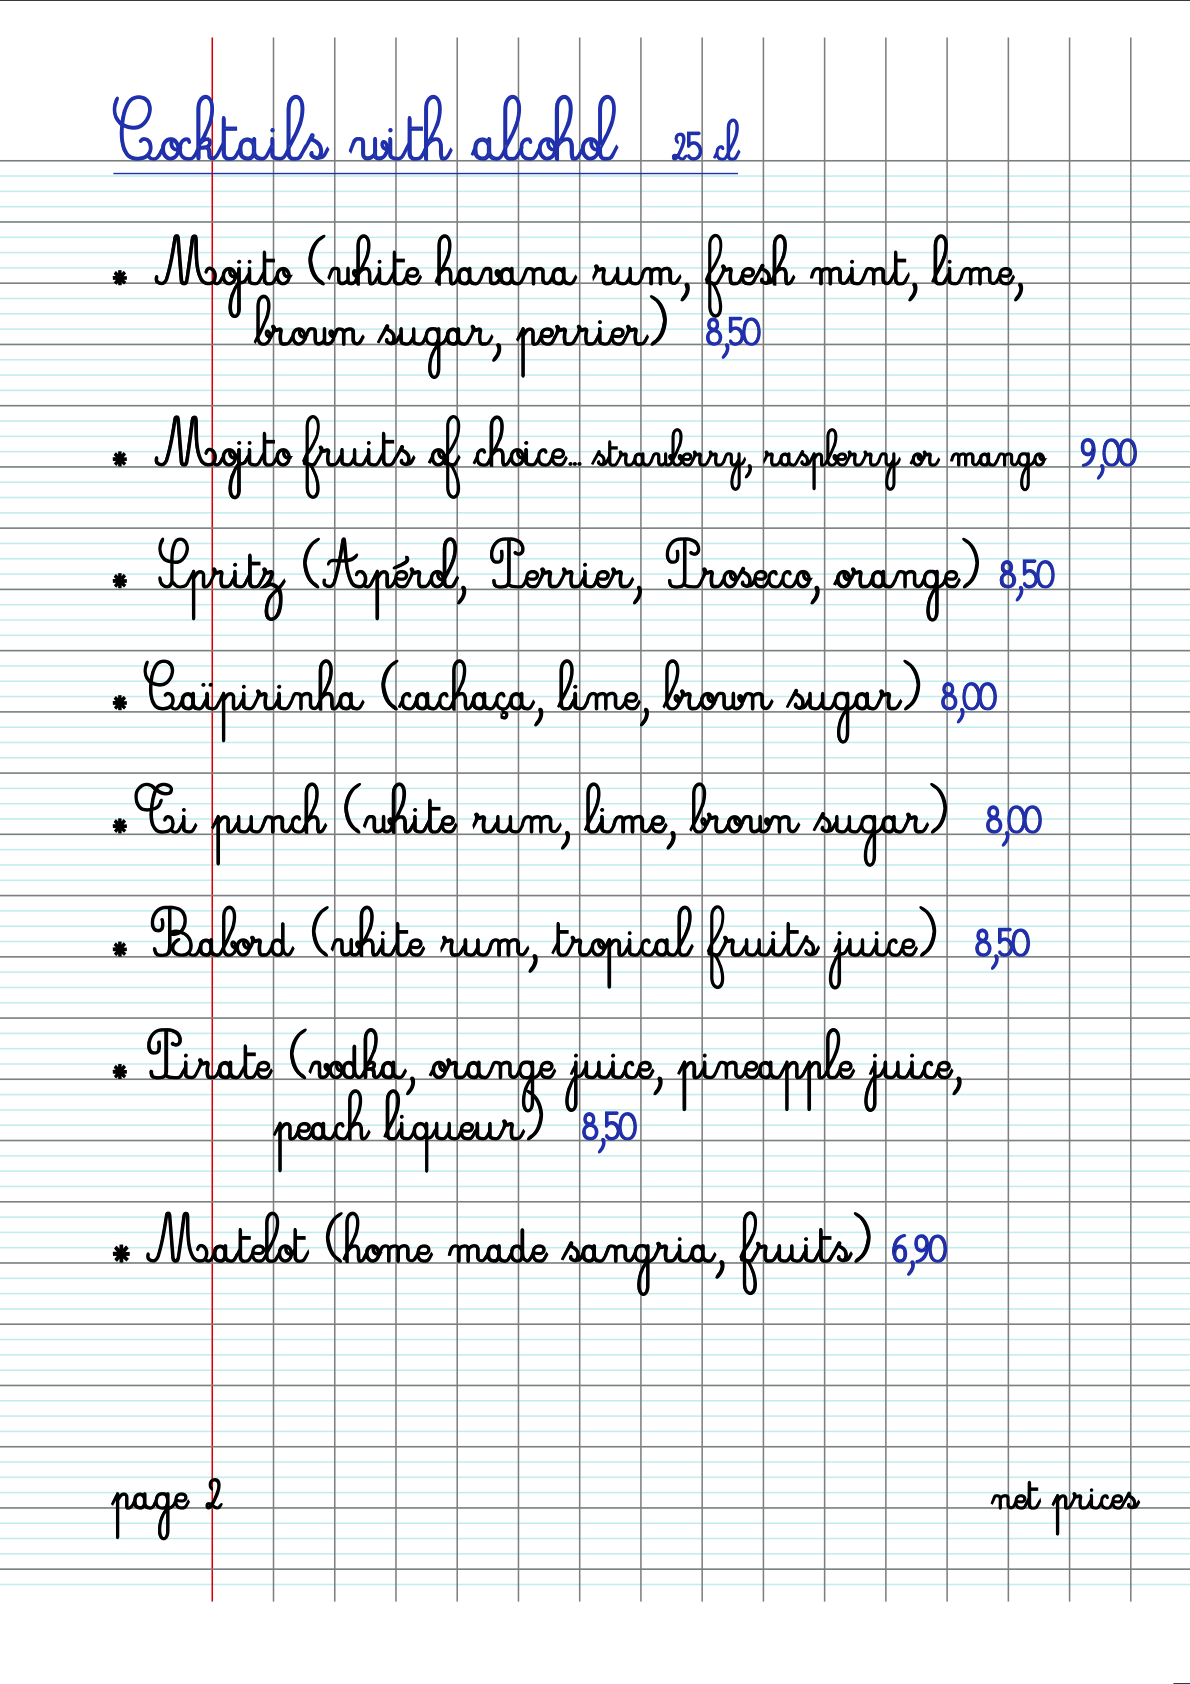 Cocktails with alcohol 25 cl
* Mojito (white havana rum, fresh mint, lime,
brown sugar, perrier) 8,50
* Mojito fruits of choice... strawberry, raspberry or mango 9,00
* Spritz (Apérol, Perrier, Prosecco, orange) 8,50
* Caïpirinha (cachaça, lime, brown sugar) 8,00
* Ti punch (white rum, lime, brown sugar) 8,00
* Babord (white rum, tropical fruits juice) 8,50
* Pirate (vodka, orange juice, pineapple juice,
peach liqueur) 8,50
* Matelot (home made sangria, fruits) 6,90
page 2 net prices